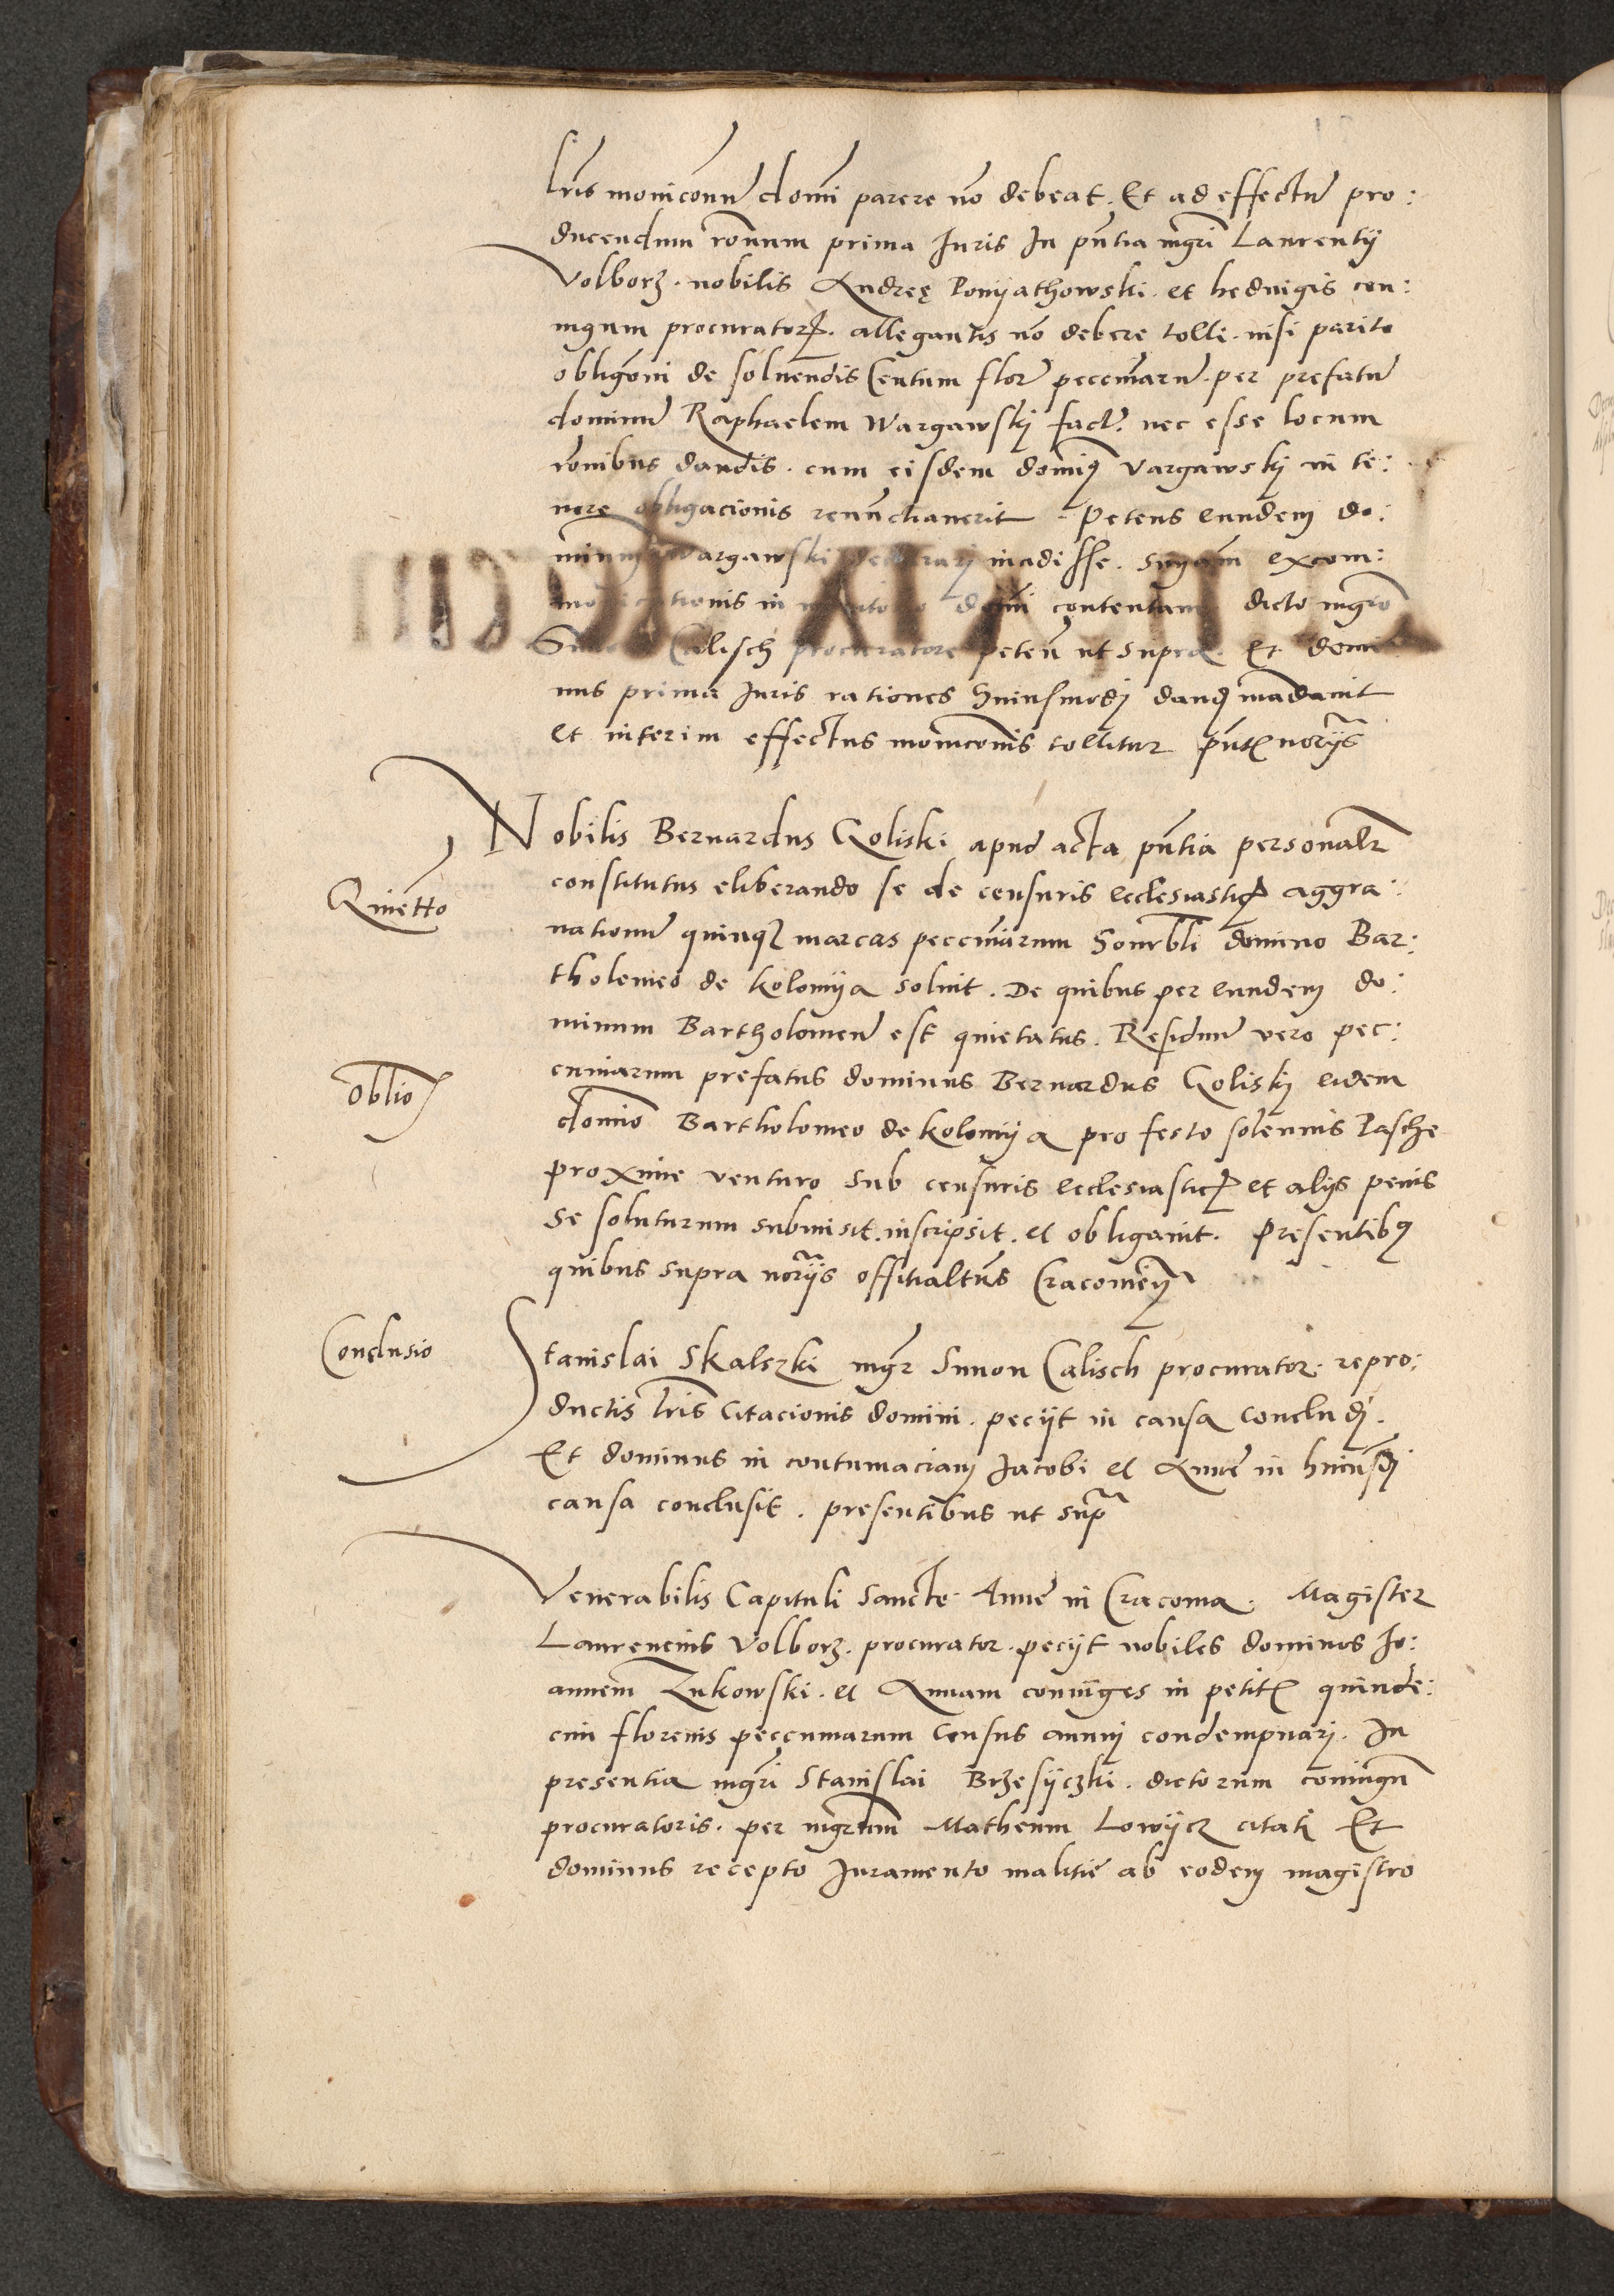 lris moniconum domi parere no debeat. Et ad effectum pro:
ducendum ronum prima Iuris In pntia mgri Laurentij
Volborz. nobilis Andreę Ponyathowski. et heduigis con:
iugum procuratoris. allegantis no debere tolli. nisi parito
obligoni de soluendis Centum flor peccuniaru. per prefatu
dominu Raphaelem Wargawskj fact. nec esse locum
ronibus dandis. cum eisdem dominus Vargawskj in te:
nore obligacionis renunctiauerit. Petens eundem do:
minum Wargawski declarari incidisse. sniam excom:
in domi contentam dicto mgro
Calisch procuratore peten ut supra. Et domi
nus prima Iuris rationes huiusmodj dandj madauit
et interim effectus moniconis tollitur pntibus norijs
Nobilis Bernardus Goliski apud acta pntia personalr
Quietto
constitutus eliberando se de censuris ecclesiasticis aggra:
uationu quinque marcas peccuniarum honorbli domino Bar:
tholomeo de Kolomija soluit. De quibus per eundem do:
minum Bartholomeu est quietatus. Residuu vero pec:
Oblio
cuniarum prefatus dominus Bernardus Goliskj eidem
domino Bartholomeo de Kolomija pro festo solennis Pasche
proxime venturo sub censuris ecclesiasticis et alijs penis
se soluturum submisit. inscripsit. et obligauit. Presentibus
quibus supra norijs offitialtus Cracouien
Conclusio
Stanislai Skalszki mgr Simon Calisch procurator. repro:
ductis lris Citacionis domini. pecijt in causa concludj.
Et dominus in contumaciam Iacobi et Anne in huiusdj
causa conclusit. presentibus ut supra
Venerabilis Capituli Sancte Anne in Cracouia. Magister
Laurencius Volborz. procurator. pecijt nobiles dominos Io:
annem Zukowski. et Annam coniuges in petitis quinde:
cim florenis peccuniarum Census annuj condempnarj. In
presentia mgri Stanislai Brzesijczki. dictorum coniugu
procuratoris. per mgrum Matheum Lowijcz citati Et
dominus recepto Iuramento malitie ab eodem magistro